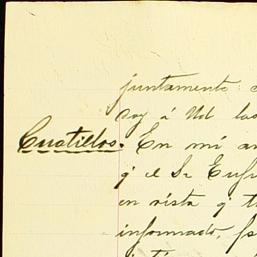 juntamento
soy á Ud las
Cuatillos. En mí
q' el Sr
en vista q' t
informado,